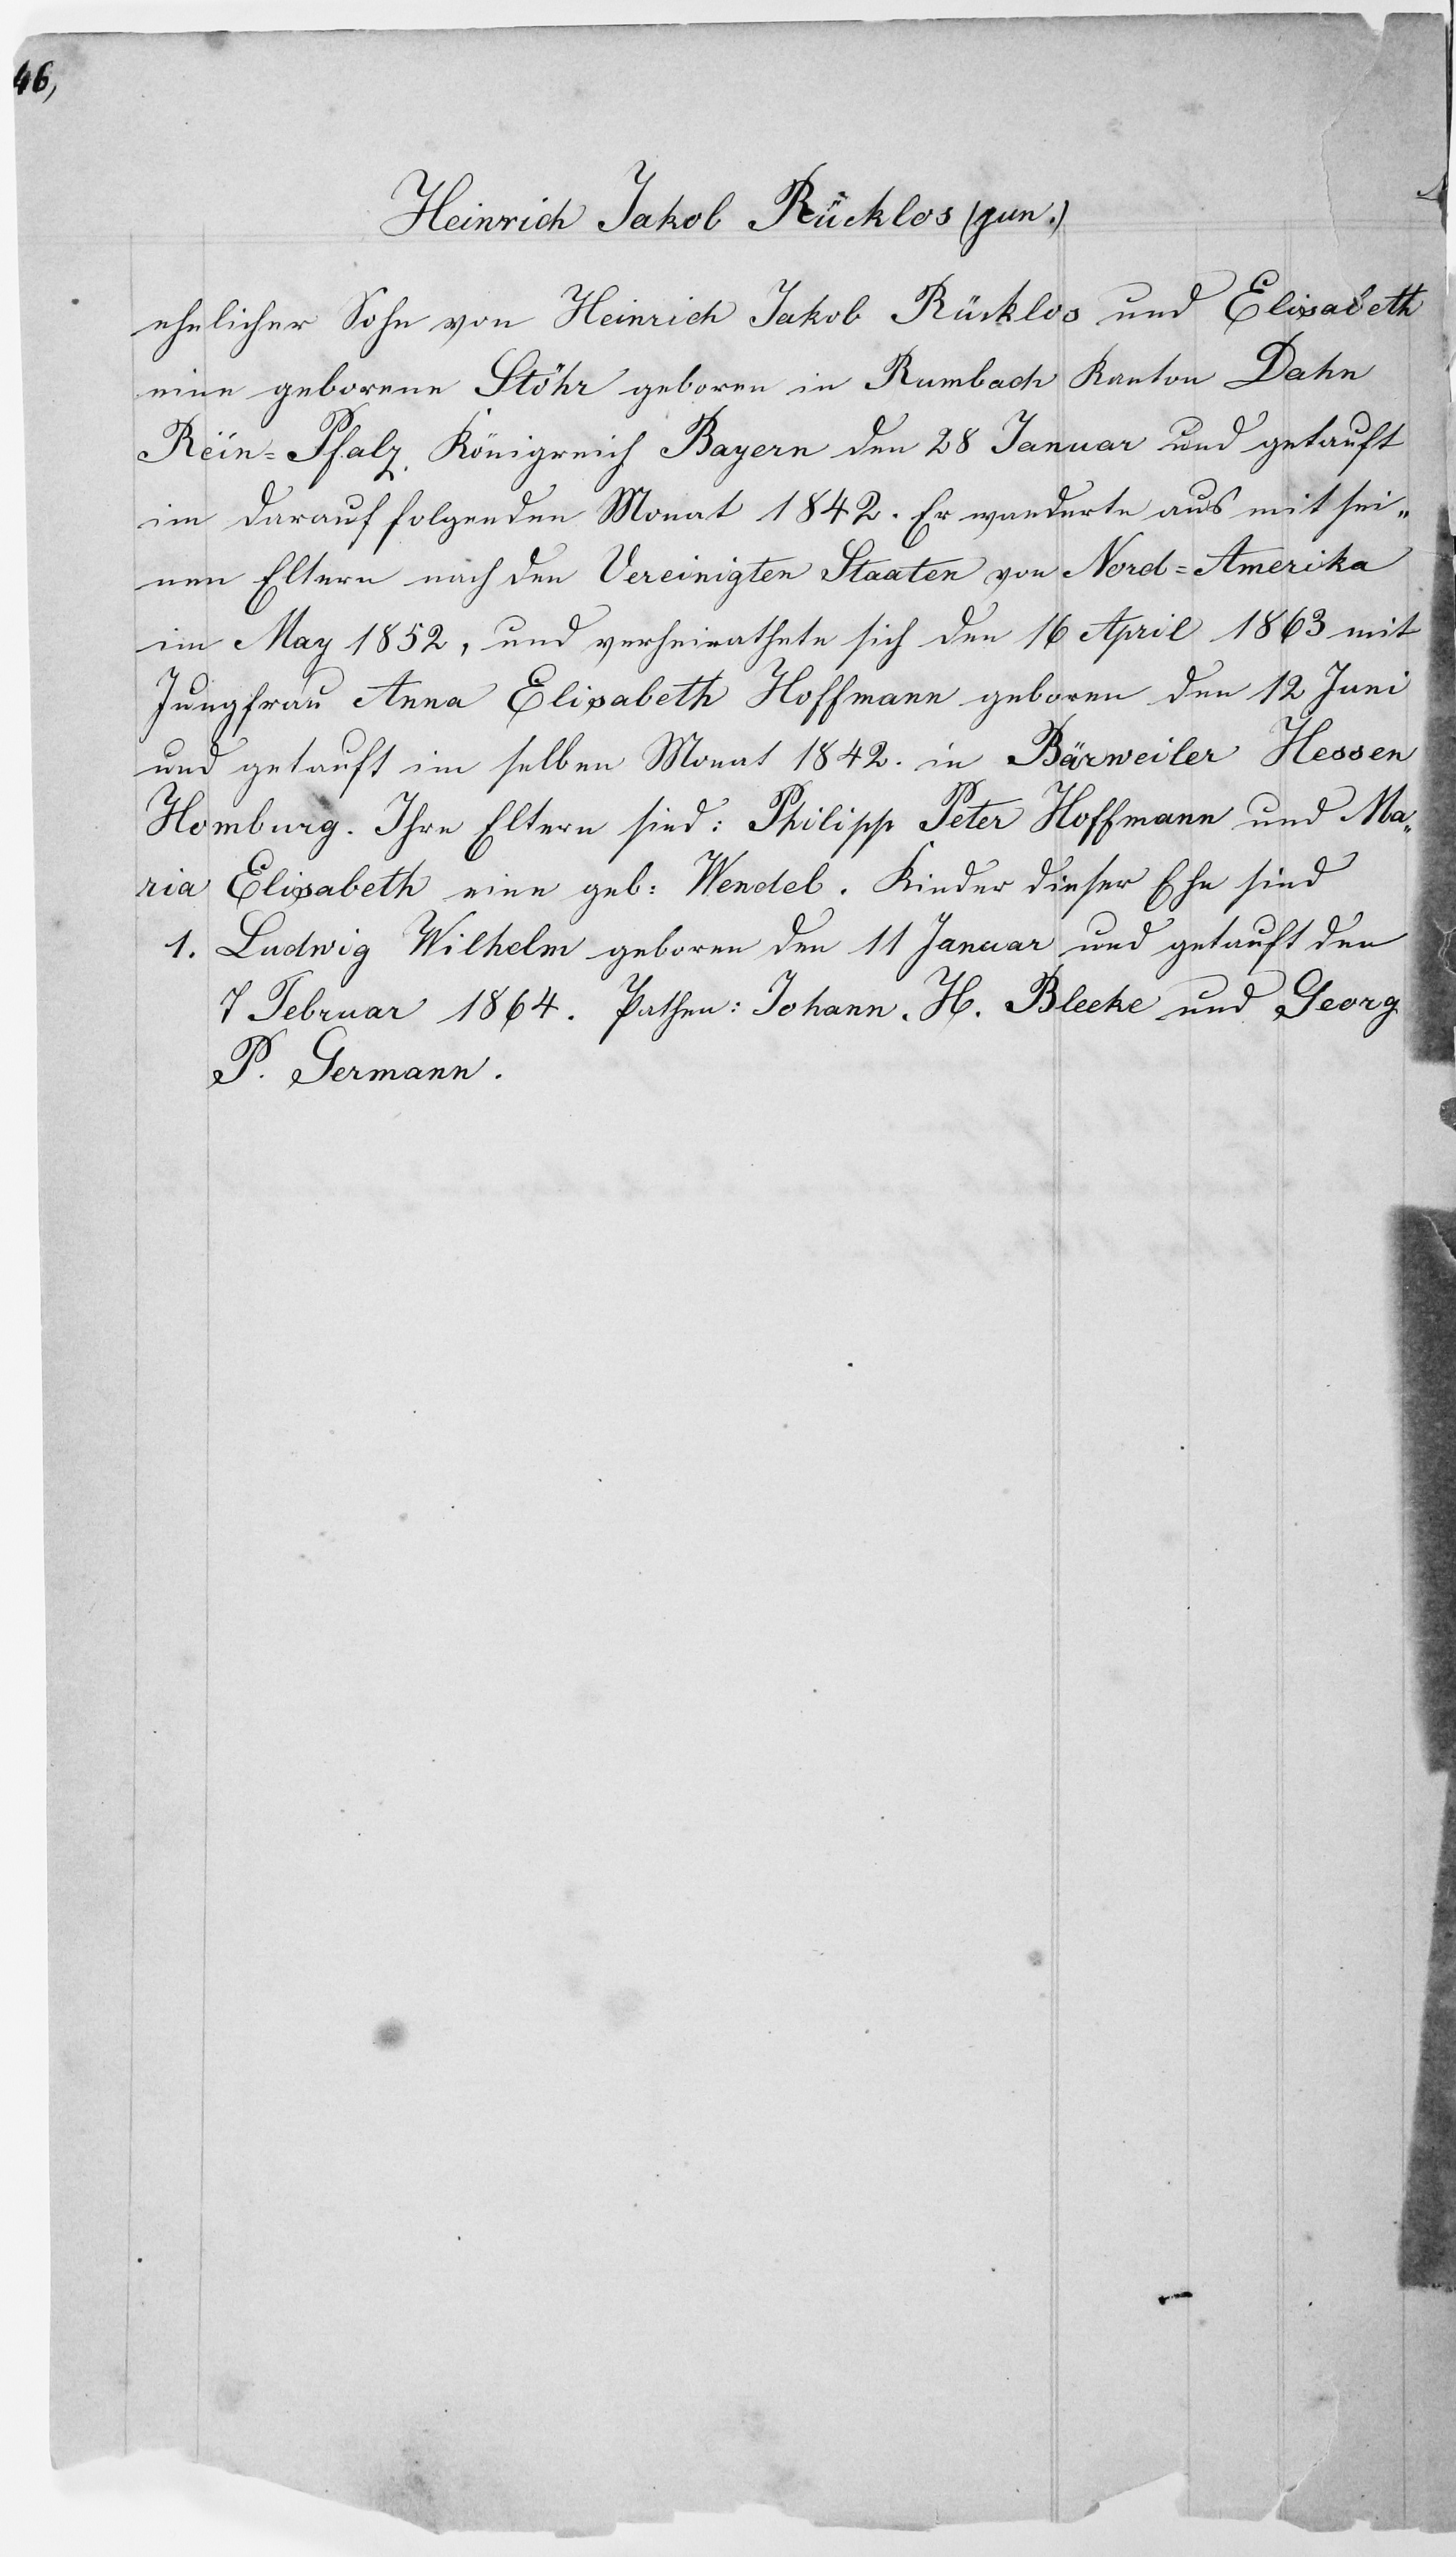 46,
Heinrich Jakob Rücklos (jun.)
ehelicher Sohn von Heinrich Jakob Rücklos und Elisabeth
eine geborene Stöhr geboren in Rumbach Kanton Dahn
Rein=Pfalz Königreich Bayern den 28 Januar und getauft
im darauf folgenden Monat 1842. Er wanderte aus mit sei„
nen Eltern nach den Vereinigten Staaten von Nord=Amerika
im May 1852, und verheirathete sich den 16 April 1863 mit
Jungfrau Anna Elisabeth Hoffmann geboren den 12 Juni
und getauft im selben Monat 1842. in Bärweiler Hessen
Homburg. Ihre Eltern sind: Philipp Peter Hoffmann und Ma„
ria Elisabeth eine geb: Wendel. Kinder dieser Ehe sind
1. Ludwig Wilhelm geboren den 11 Januar und getauft den
7 Februar 1864. Pathen: Johann. H. Bleeke und Georg
P. Germann.